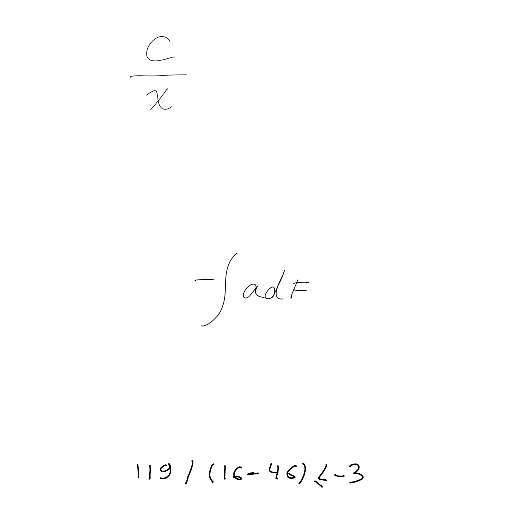 \frac{C}{x}
-\int adF
119 / (16-46) ≤ -3